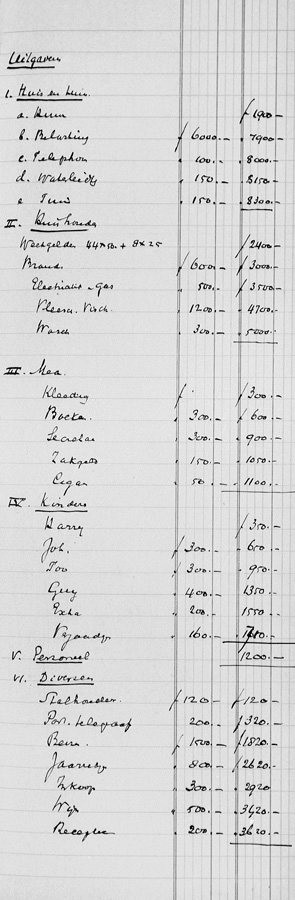 Uitgaven
I. Huis en tuin.
a. Huur ƒ 1900.-
b. Belasting ƒ 6000.- " 7900-
c. Telephon " 100.- " 8000-
d. Waterleidg " 150.- " 8150-
e Tuin " 150.- " 8300.-
II. Huishouden
Weekgelden 44 x 50. + 8 x 25 ƒ 2400-
Brand. ƒ 600.- ƒ 3000-
Electriciteit - Gas " 500.- ƒ 3500-
Vleesch. Visch. " 1200.- " 4700-
Wasch " 300.- " 5000.-
III. Mea.
Kleeding ƒ ƒ 300.-
Boeken " 300.- ƒ 600-
" 300.- " 900-
Zakgeld " 150.- " 1050.
Cigar " 50.- " 1100.-
IV. Kinders
Harry ƒ 350.-
Job. ƒ 300.- " 650-
Too ƒ 300.- " 950.-
Guy " 400.- 1350
Extra " 200.- 1550
" 160.-
V. Personeel 1200.-
VI. Diversen
Stalhouder. ƒ 120- ƒ 120-
Port. telegraaf 200.- ƒ 320.-
ƒ 1500.- ƒ 1820.-
" 800.- ƒ 2620.-
Inkoop " 300.- " 2920
Wijn " 500.- " 3420.-
Receptie " 200.- " 3620.-